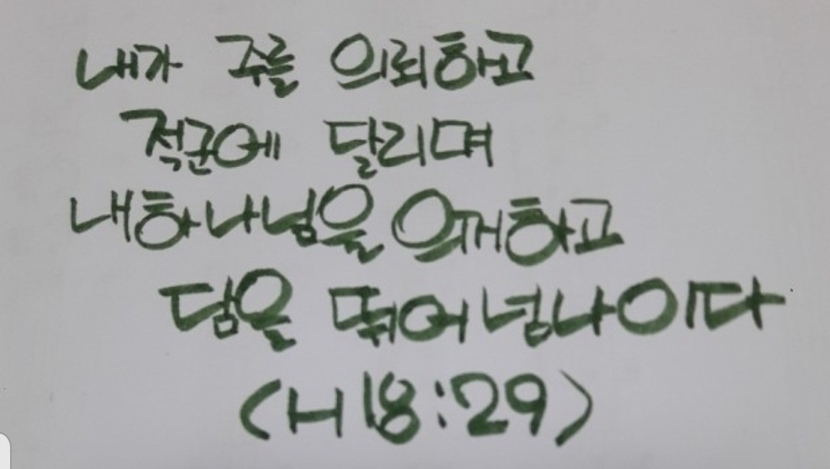 내가 주를 의뢰하고
적군에 달리며
내 하나님을 의지하고
담을 뛰어 넘나이다
(시 18:29)